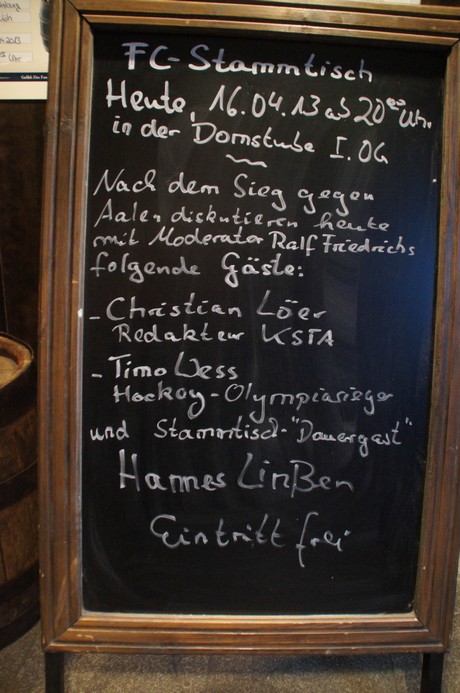 FC-Stammtisch
Heute, 16.04.13 ab 20⁰⁰ Uhr
in der Domstube I. OG
Nach dem Sieg gegen
Aalen diskutieren heute
mit Moderator Ralf Friedrichs
folgende Gäste:
- Christian Löer
Redakteur KSTA
- Timo Wess
Hockey-Olympiasieger
und Stammtisch-"Dauergast"
Hannes Linßen
Eintritt frei